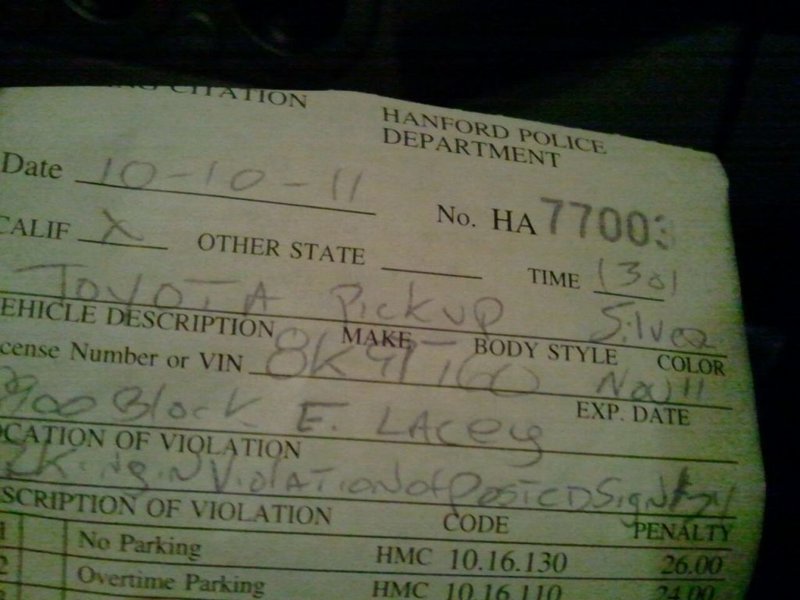 CITATION
HANFORD POLICE
DEPARTMENT
Date 10-10-11
No. HA 77003
CALIF X OTHER STATE
TIME 1301
TOYOTA Pickup Silver
VEHICLE DESCRIPTION MAKE BODY STYLE COLOR
License Number or VIN Nov 11
EXP. DATE
Block E. LACey
LOCATION OF VIOLATION
in Violation of Posted Sign
DESCRIPTION OF VIOLATION CODE PENALTY
1 No Parking HMC 10.16.130 26.00
2 Overtime Parking HMC 10.16.110 24.00